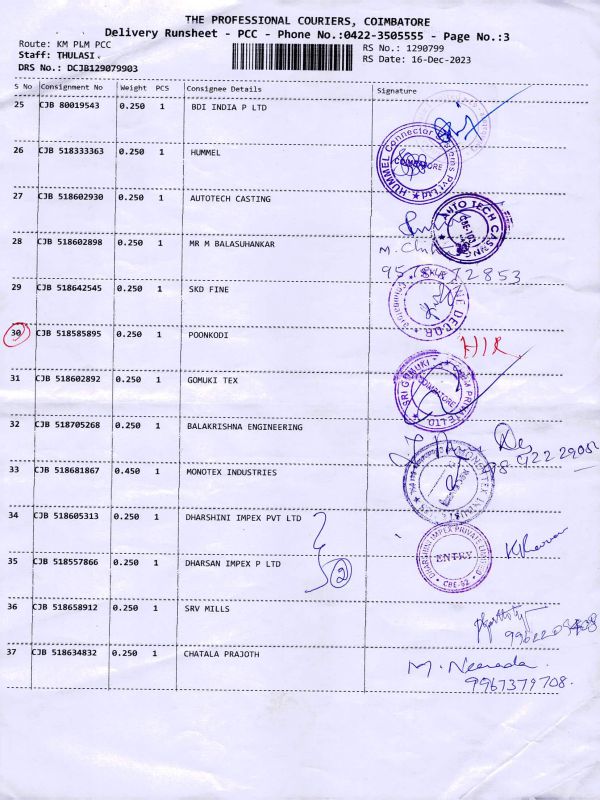 THE PROFESSIONAL COURIERS, COIMBATORE
Delivery Runsheet - PCC - Phone No.:0422-3505555 - Page No.:3
Route: KM PLM PCC RS No.: 1290799
Staff: THULASI. RS Date: 16-Dec-2023
DRS No.: DCJB129079903
S No Consignment No Weight PCS Consignee Details Signature
25 CJB 80019543 0.250 1 BDI INDIA P LTD
26 CJB 518333363 0.250 1 HUMMEL
HUMMEL Connector Systems Pvt Ltd
COIMBATORE
27 CJB 518602930 0.250 1 AUTOTECH CASTING
AUTO TECH CASING
28 CJB 518602898 0.250 1 MR M BALASUHANKAR
29 CJB 518642545 0.250 1 SKD FINE
30 CJB 518585895 0.250 1 POONKODI
31 CJB 518602892 0.250 1 GOMUKI TEX
SRI GOMUKI PRIVATE LTD
COIMBATORE
32 CJB 518705268 0.250 1 BALAKRISHNA ENGINEERING
33 CJB 518681867 0.450 1 MONOTEX INDUSTRIES
34 CJB 518605313 0.250 1 DHARSHINI IMPEX PVT LTD
DHARSHINI IMPEX PRIVATE LIMITED
ENTRY
CBE-62
35 CJB 518557866 0.250 1 DHARSAN IMPEX P LTD
2
36 CJB 518658912 0.250 1 SRV MILLS
37 CJB 518634832 0.250 1 CHATALA PRAJOTH
M. Neerada.
9967379708.